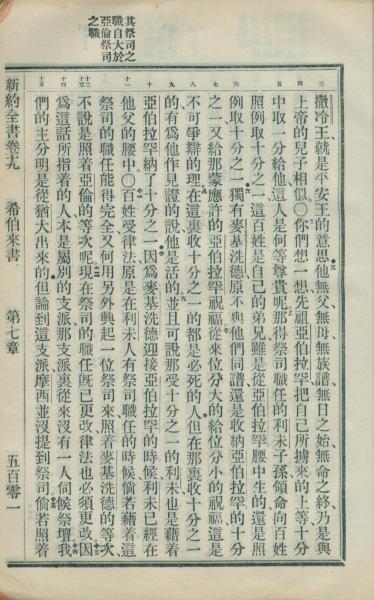 其祭司之
職自大於
亞倫祭司
之職
三
撒冷王就是平安王的意思他無父無母無族譜無日之始無命之終乃是與
上帝的兒子相似〇你們想一想先祖亞伯拉罕把自己所擄來的上等十分
四
中取一分給他這人是何等尊貴呢那得祭司職任的利未子孫領命向百姓
五
照例取十分之一這百姓是自己的弟兄雖是從亞伯拉罕腰中生的還是照
例取十分之一獨有麥基洗德原不與他們同譜還是收納亞伯拉罕的十分
六
之一又給那蒙應許的亞伯拉罕祝福從來位分大的給位分小的祝福這是
七
不可爭辯的理在這裏收十分之一的都是必死的人但在那裏收十分之一
八
的有爲他作見證的說他是活的並且可說那受十分之一的利未也是藉着
九
亞伯拉罕納了十分之一因爲麥基洗德迎接亞伯拉罕的時候利未已經在
十
他父的腰中〇百姓受律法原是在利未人有祭司職任的時候倘若藉着這
十一
祭司的職任能得完全又何用另外興起一位祭司來照着麥基洗德的等次
不說是照着亞倫的等次呢現在祭司的職任旣已更改律法也必須更改因
十二
十三
爲這話所指着的人本是屬別的支派那支派裏從來沒有一人伺候祭壇我
十四
們的主分明是從猶大出來的但論到這支派摩西並沒提到祭司倘若照着
十五
新約全書卷十九 希伯來書 第七章 五百零一